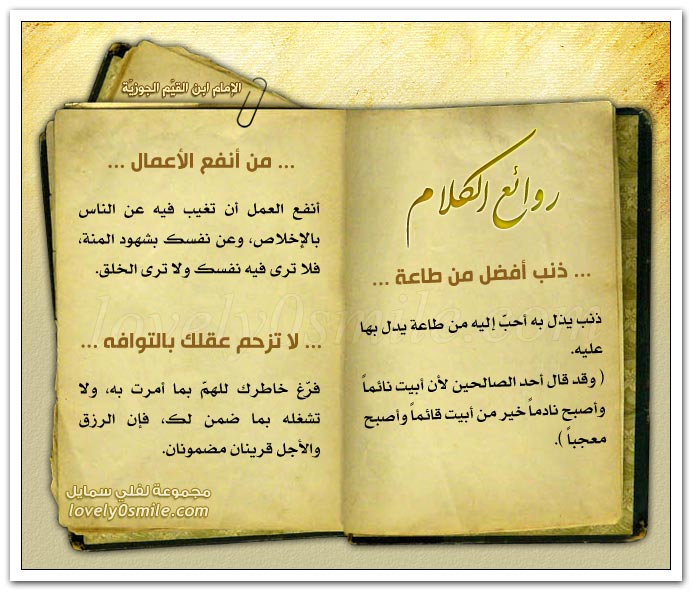 الإمام ابن القيّم الجوزيّة
روائع الكلام
... ذنب أفضل من طاعة ...
ذنب يذل به أحبّ إليه من طاعة يدل بها
عليه.
( وقد قال أحد الصالحين لأن أبيت نائماً
وأصبح نادماً خير من أبيت قائماً وأصبح
معجباً ).
... من أنفع الأعمال ...
أنفع العمل أن تغيب فيه عن الناس
بالإخلاص، وعن نفسك بشهود المنة،
فلا ترى فيه نفسك ولا ترى الخلق.
... لا تزحم عقلك بالتوافه ...
فرّغ خاطرك للهمّ بما أمرت به، ولا
تشغله بما ضمن لك، فإن الرزق
والأجل قرينان مضمونان.
مجموعة لفلي سمايل
lovely0smile.com
lovely0smile.com